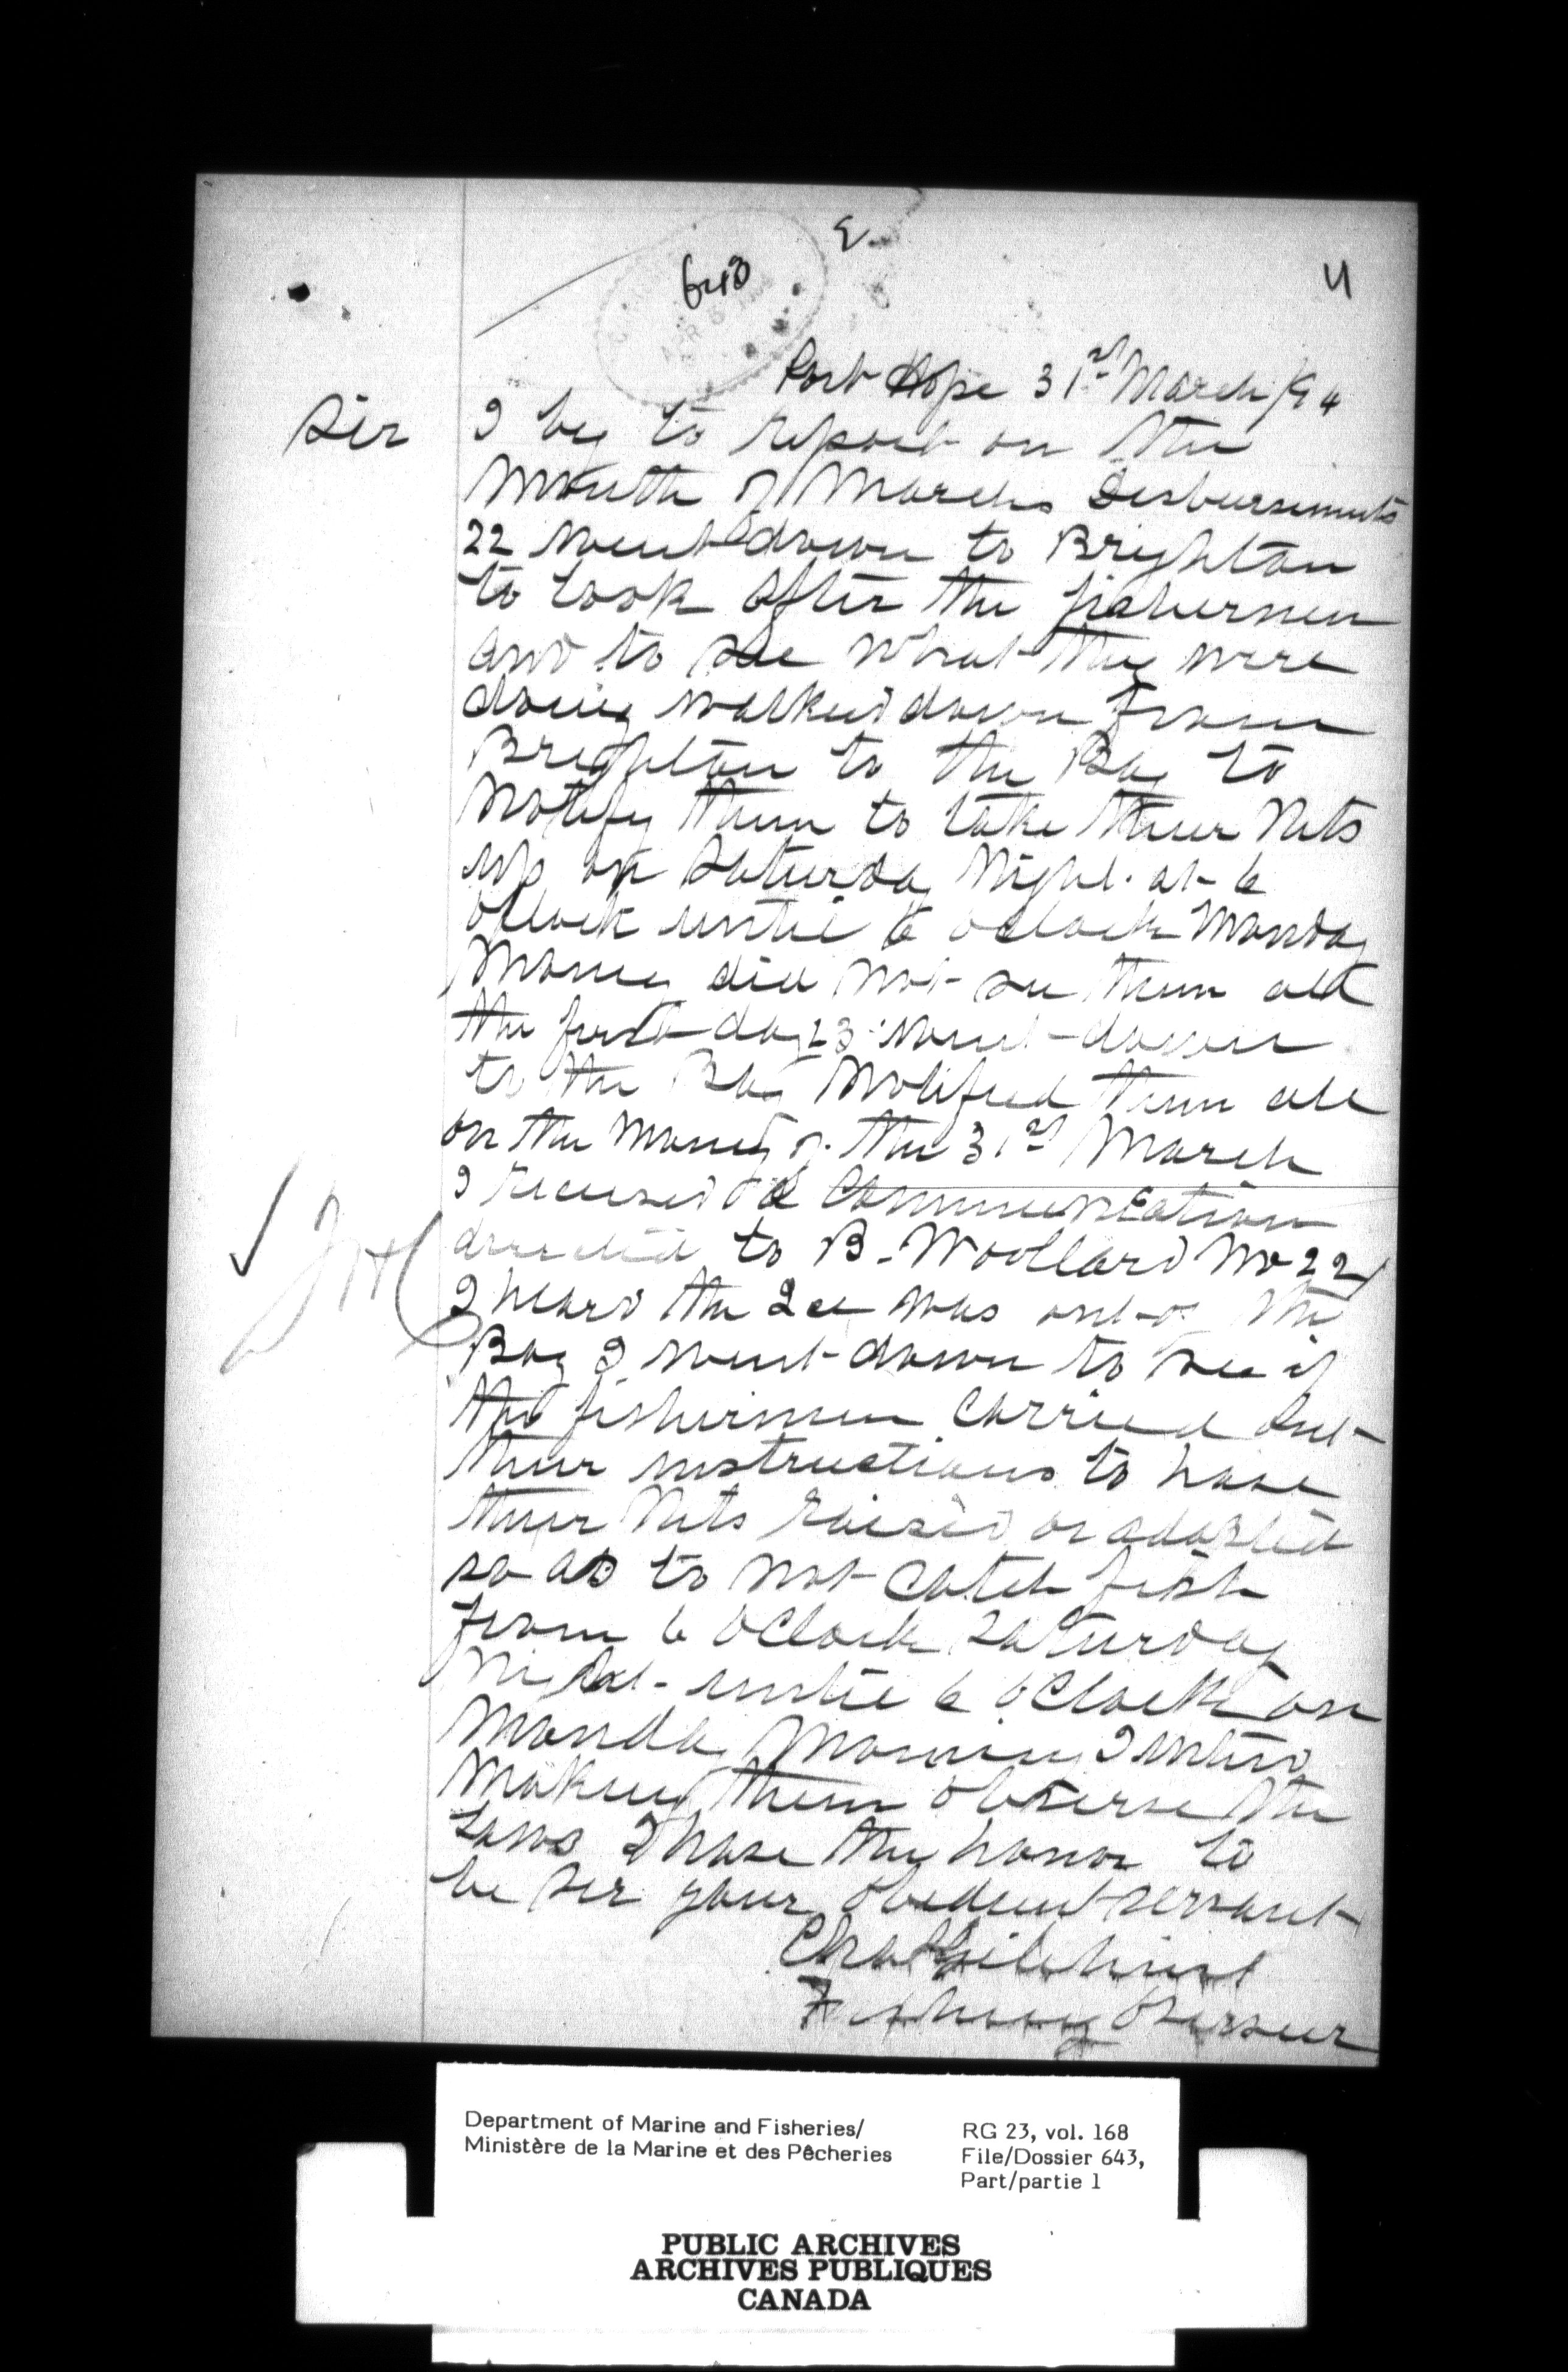 643
Port Hope 31st March /94
Sir
I beg to report on the
Month of Marchs Disbursements
22 went down to Brighton
to look after the fishermen
and to see what they were
doing walked down from
Brighton to the Bay to
Notify them to take their Nets
up on Saturday Night at 6
oClock until 6 oclock Monday
Morng did not see them all
the first day 23 went down
to the Bay Notified them all
on the Morng of the 31st March
I received a Communication
directed to B. Woollard No 22
I heard the Ice was out of the
Bay I went down to see if
the fishermen Carried Out
their instructions to have
their Nets raised or adopted
so as to not Catch fish
from 6 oClock Saturday
Night until 6 oClock on
Monday Morning I intend
Making them observe the
Laws I have the honor to
be Sir your obedient servant
Chas Gilchrist
Fishery Overseer
Department of Marine and Fisheries/
Ministère de la Marine et des Pêcheries
RG 23, vol. 168
File/Dossier 643,
Part/partie 1
PUBLIC ARCHIVES
ARCHIVES PUBLIQUES
CANADA